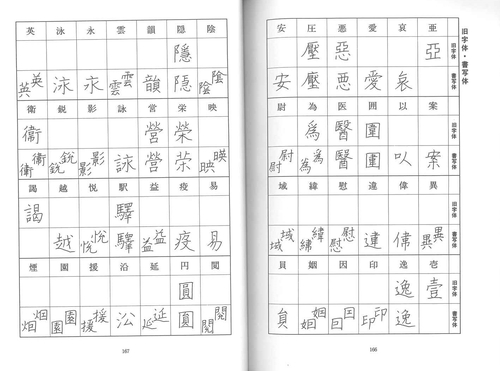 旧字体・書写体
亜 哀 愛 悪 圧 安
旧字体 亞 惡 壓
書写体 哀 愛 悪 壓 安
案 以 囲 医 為 尉
旧字体 圍 醫 爲
書写体 案 以 圍 醫 為 尉 尉
異 偉 違 慰 緯 域
旧字体
書写体 異 異 偉 違 慰 慰 緯 緯 域 域
壱 逸 印 因 姻 員
旧字体 壹 逸
書写体 逸 印 印 因 姻 姻 員
166
陰 隠 韻 雲 永 泳 英
隱
陰 陰 隠 韻 雲 雲 永 泳 英 英
映 栄 営 詠 影 鋭 衛
榮 營 衞
映 映 栄 營 詠 影 影 鋭 鋭 衛 衛
易 疫 益 駅 悦 越 謁
驛 謁
易 疫 益 益 驛 悦 悦 越
閲 円 延 沿 援 園 煙
圓
閲 閲 圓 延 延 沿 援 援 園 園 烟 烟
167